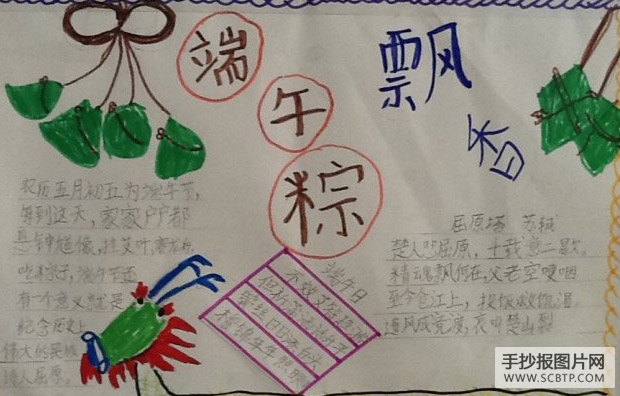 端午粽
飘香
农历五月初五为端午节,
每到这天,家家户户都
悬钟馗像,挂艾叶,
吃粽子,端午节还
有一个意义就是
纪念历史上
伟大的民族
诗人屈原。
端午日
不效艾符
但祈
屈原塔 苏轼
楚人悲屈原,千载意未歇。
精魂飘何在,父老空哽咽
至今仓江上,投饭救饥渴。
遗风成竞渡,哀叫楚山裂
手抄报图片网
WWW.SCBTP.COM